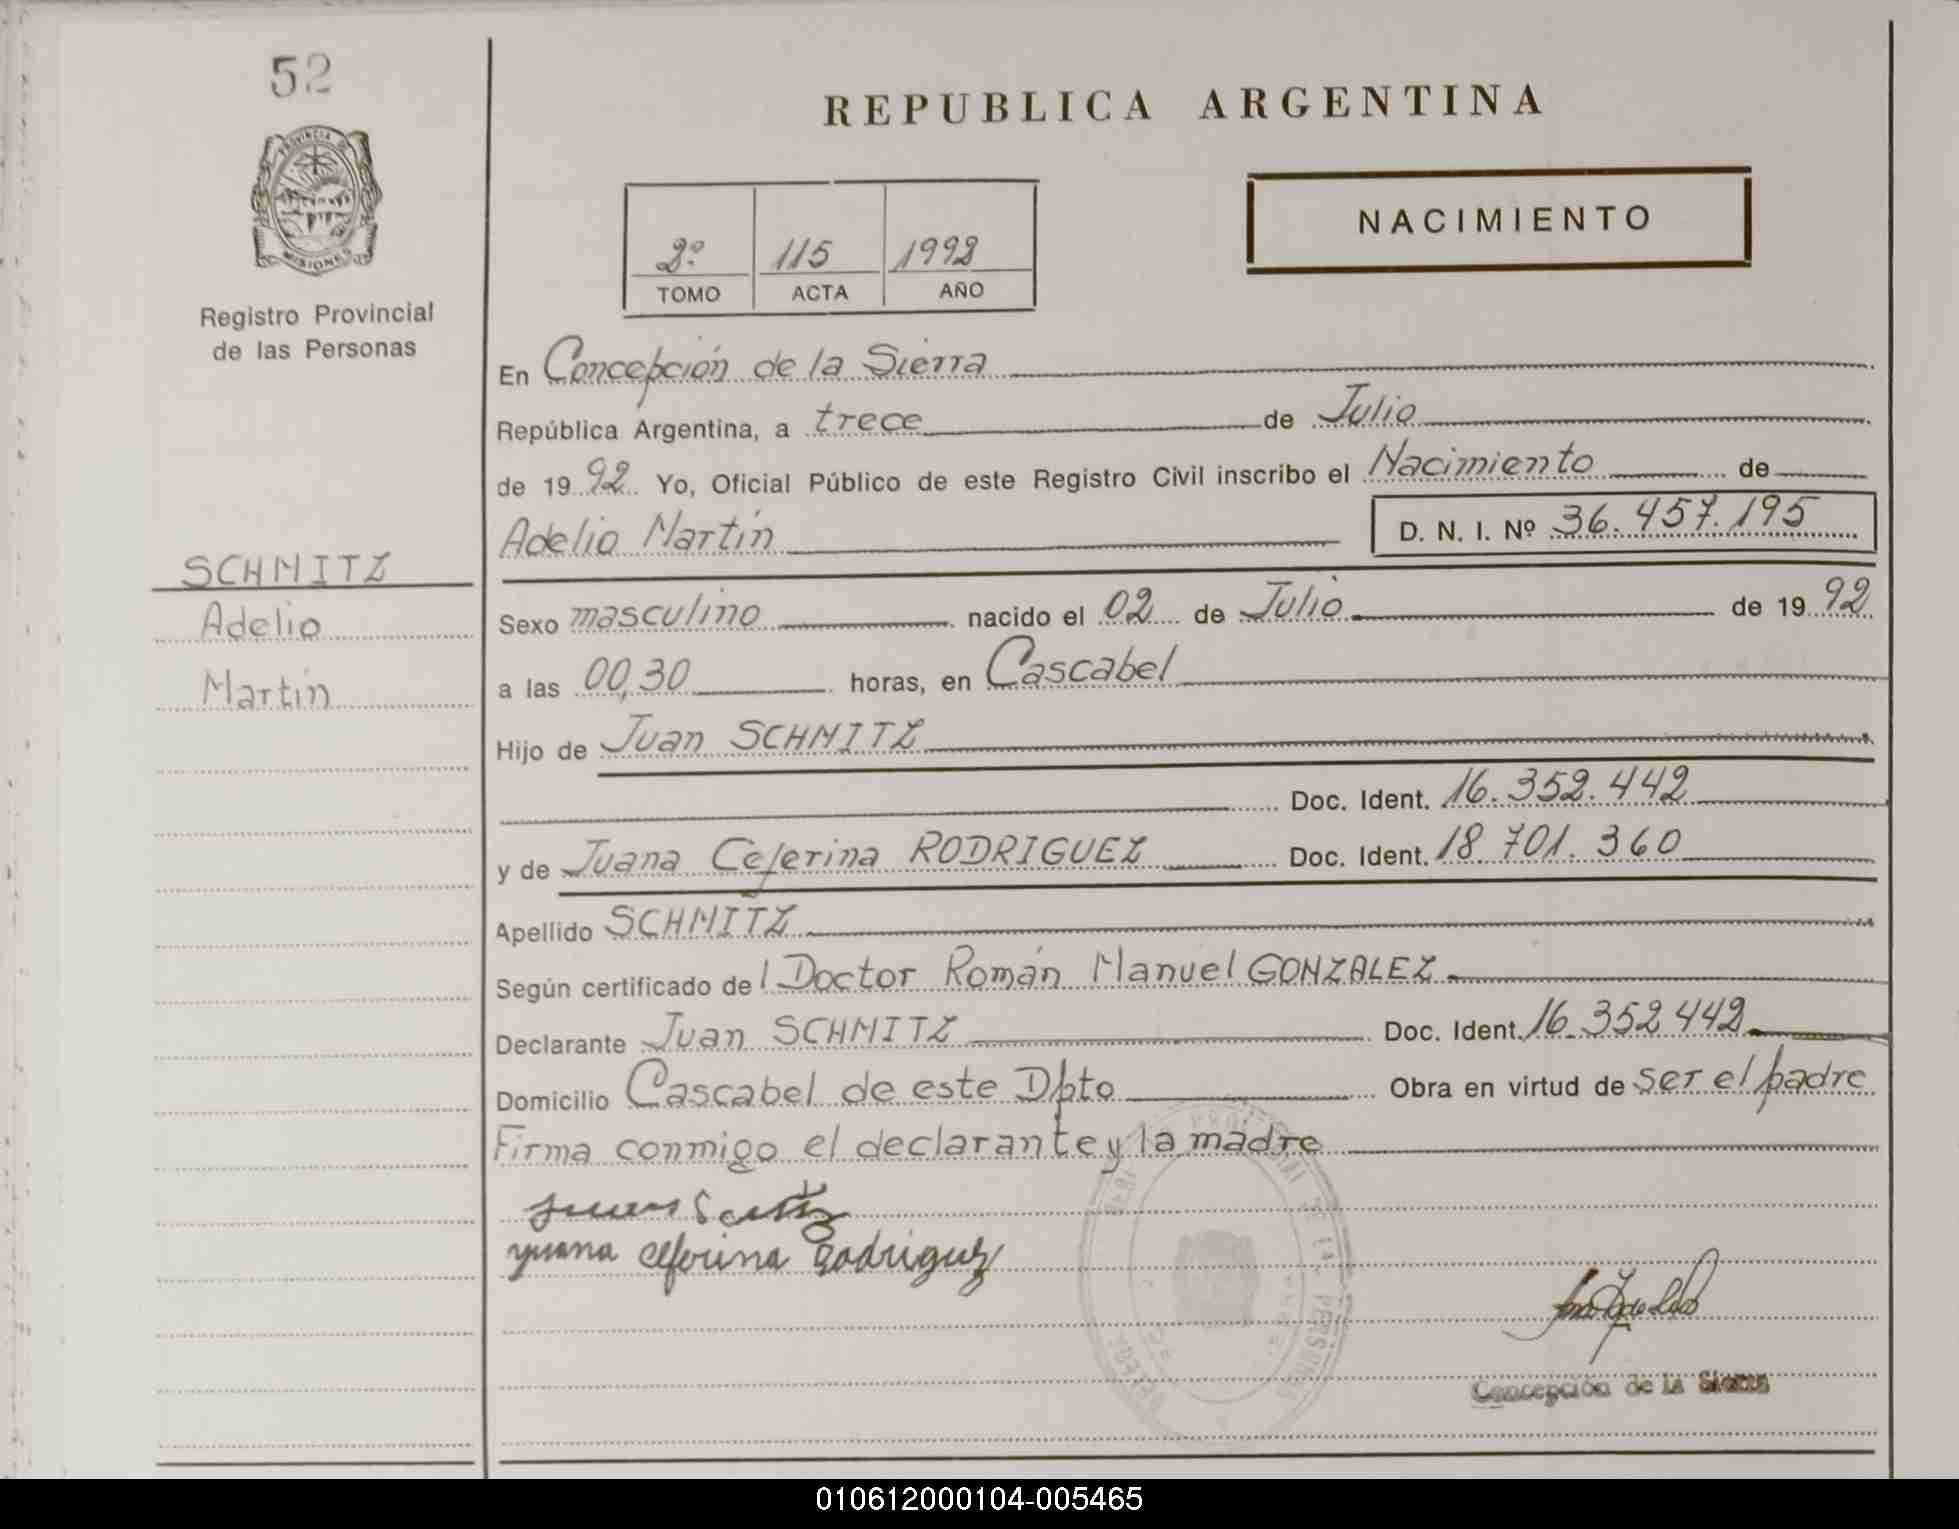 52
PROVINCIA DE
MISIONES
Registro Provincial
de las Personas
SCHMITZ
Adelio
Martín
REPUBLICA ARGENTINA
2º 115 1992
TOMO ACTA AÑO
NACIMIENTO
En Concepción de la Sierra
República Argentina, a trece de Julio
de 1992 Yo, Oficial Público de este Registro Civil inscribo el Nacimiento de
Adelio Martín D. N. I. Nº 36.457.195
Sexo masculino nacido el 02 de Julio de 1992
a las 00,30 horas, en Cascabel
Hijo de Juan SCHMITZ
Doc. Ident. 16.352.442
y de Juana Ceferina RODRIGUEZ Doc. Ident. 18.701.360
Apellido SCHMITZ
Según certificado del Doctor Román Manuel GONZALEZ
Declarante Juan SCHMITZ Doc. Ident. 16.352.442
Domicilio Cascabel de este Dpto Obra en virtud de ser el padre
Firma conmigo el declarante y la madre
yuana ceferina Rodriguez
Concepción de la Sierra
010612000104-005465